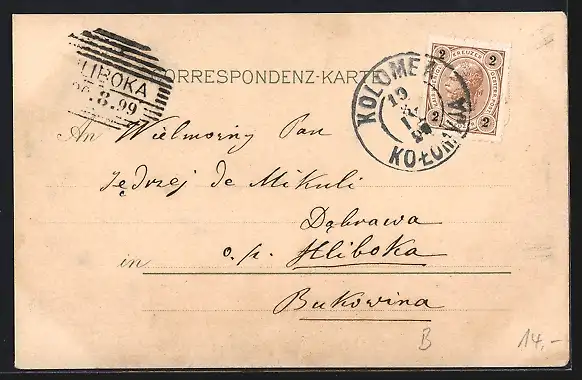 CORRESPONDENZ-KARTE
HLIBOKA
.8.99
KOLOMEA
19
KOŁOMYJA
2 KREUZER 2
2 2
An Wielmożny Pan
Jędrzej de Mikuli
Dąbrawa
o. p. Hliboka
in
Bukowina
B 14.-